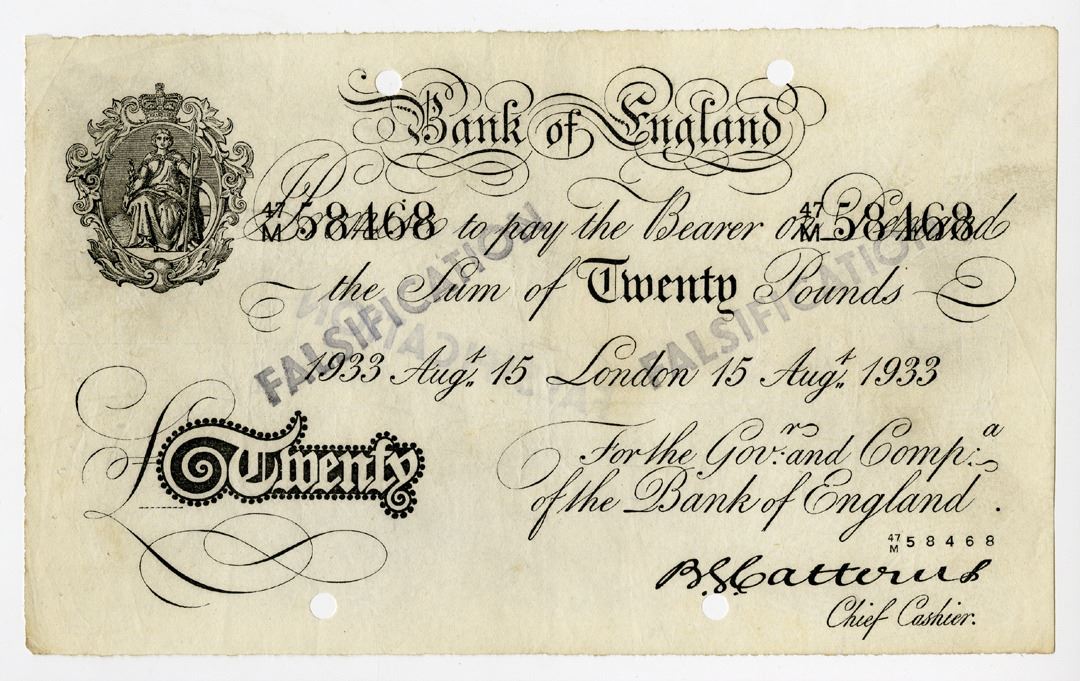 Bank of England
47/M 58468 47/M 58468
I Promise to pay the Bearer on Demand
the Sum of Twenty Pounds
FALSIFICATION FALSIFICATION
1933 Augt. 15 London 15 Augt. 1933
£Twenty
For the Govr. and Compa.
of the Bank of England.
47/M 58468
B.G. Catterns
Chief Cashier.